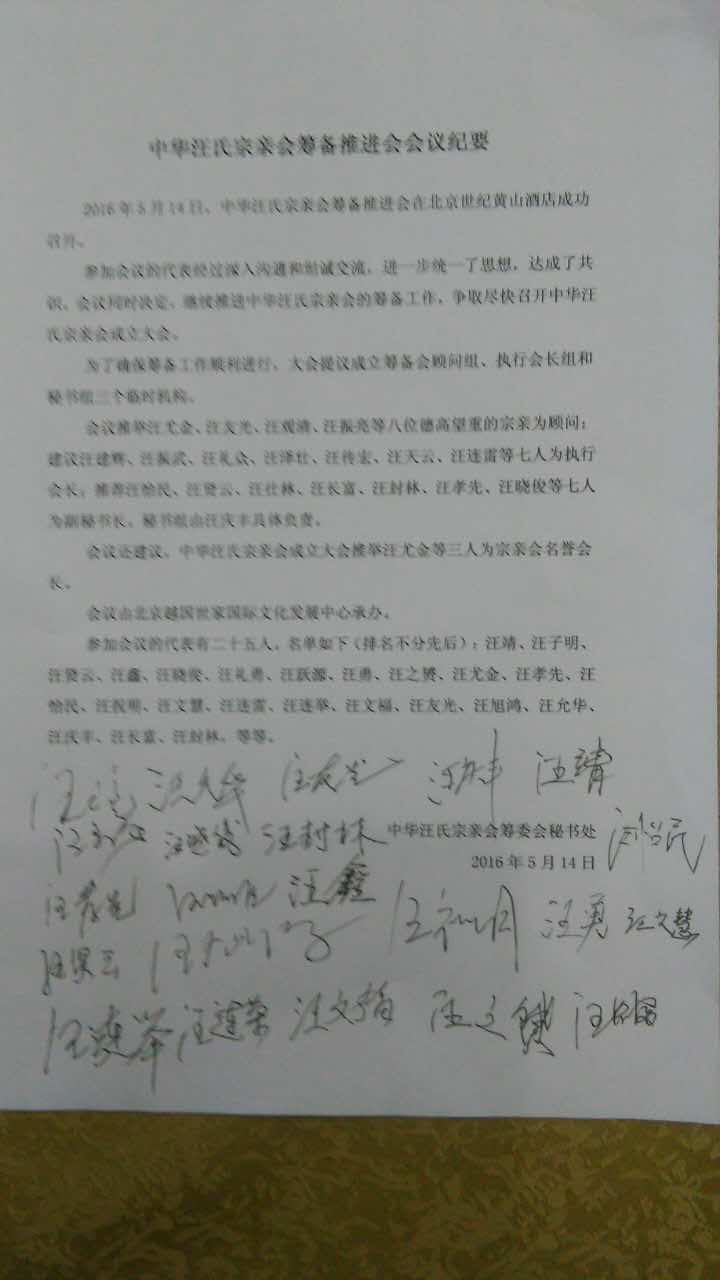 中华汪氏宗亲会筹备推进会会议纪要
2016年5月14日，中华汪氏宗亲会筹备推进会在北京世纪黄山酒店成功
召开。
参加会议的代表经过深入沟通和坦诚交流，进一步统一了思想，达成了共
识。会议同时决定，继续推进中华汪氏宗亲会的筹备工作，争取尽快召开中华汪
氏宗亲会成立大会。
为了确保筹备工作顺利进行，大会提议成立筹备会顾问组、执行会长组和
秘书组三个临时机构。
会议推举汪尤金、汪友光、汪观清、汪振亮等八位德高望重的宗亲为顾问；
建议汪建辉、汪振武、汪礼众、汪泽壮、汪传宏、汪天云、汪连雷等七人为执行
会长；推荐汪怡民、汪贤云、汪仕林、汪长富、汪封林、汪孝先、汪晓俊等七人
为副秘书长。秘书组由汪庆丰具体负责。
会议还建议，中华汪氏宗亲会成立大会推举汪尤金等三人为宗亲会名誉会
长。
会议由北京越国世家国际文化发展中心承办。
参加会议的代表有二十五人，名单如下（排名不分先后）：汪靖、汪子明、
汪贤云、汪鑫、汪晓俊、汪礼勇、汪跃源、汪勇、汪之赟、汪尤金、汪孝先、汪
怡民、汪祝明、汪文慧、汪连雷、汪连举、汪文福、汪友光、汪旭鸿、汪允华、
汪庆丰、汪长富、汪封林。等等。
汪允华 汪友光 汪庆丰 汪靖
汪晓俊 汪封林 中华汪氏宗亲会筹委会秘书处 汪怡民
2016年5月14日
汪孝先 汪鑫
汪贤云 汪祝明 汪勇 汪文慧
汪连举 汪文福